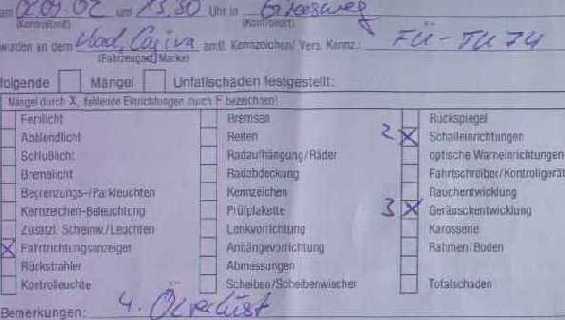 am 02.09.02 um 15.30 Uhr in
(Kontrollzeit) (Kontrollort)
wurden an dem Cagiva amtl. Kennzeichen/ Vers. Kennz.: FÜ-TU 74
(Fahrzeugart, Marke)
folgende Mängel Unfallschäden festgestellt:
Mängel durch X, fehlende Einrichtungen durch F bezeichnen!
Fernlicht Bremsen Rückspiegel
Abblendlicht Reifen 2 X Schalleinrichtungen
Schlußlicht Radaufhängung/Räder optische Warneinrichtungen
Bremslicht Radabdeckung Fahrtschreiber/Kontrollgerät
Begrenzungs-/Parkleuchten Kennzeichen Rauchentwicklung
Kennzeichen-Beleuchtung Prüfplakette 3 X Geräuschentwicklung
Zusätzl. Scheinw./Leuchten Lenkvorrichtung Karosserie
X Fahrtrichtungsanzeiger Anhängevorrichtung Rahmen/Boden
Rückstrahler Abmessungen
Kontrolleuchte Scheiben/Scheibenwischer Totalschaden
Bemerkungen: 4. Ölverlust